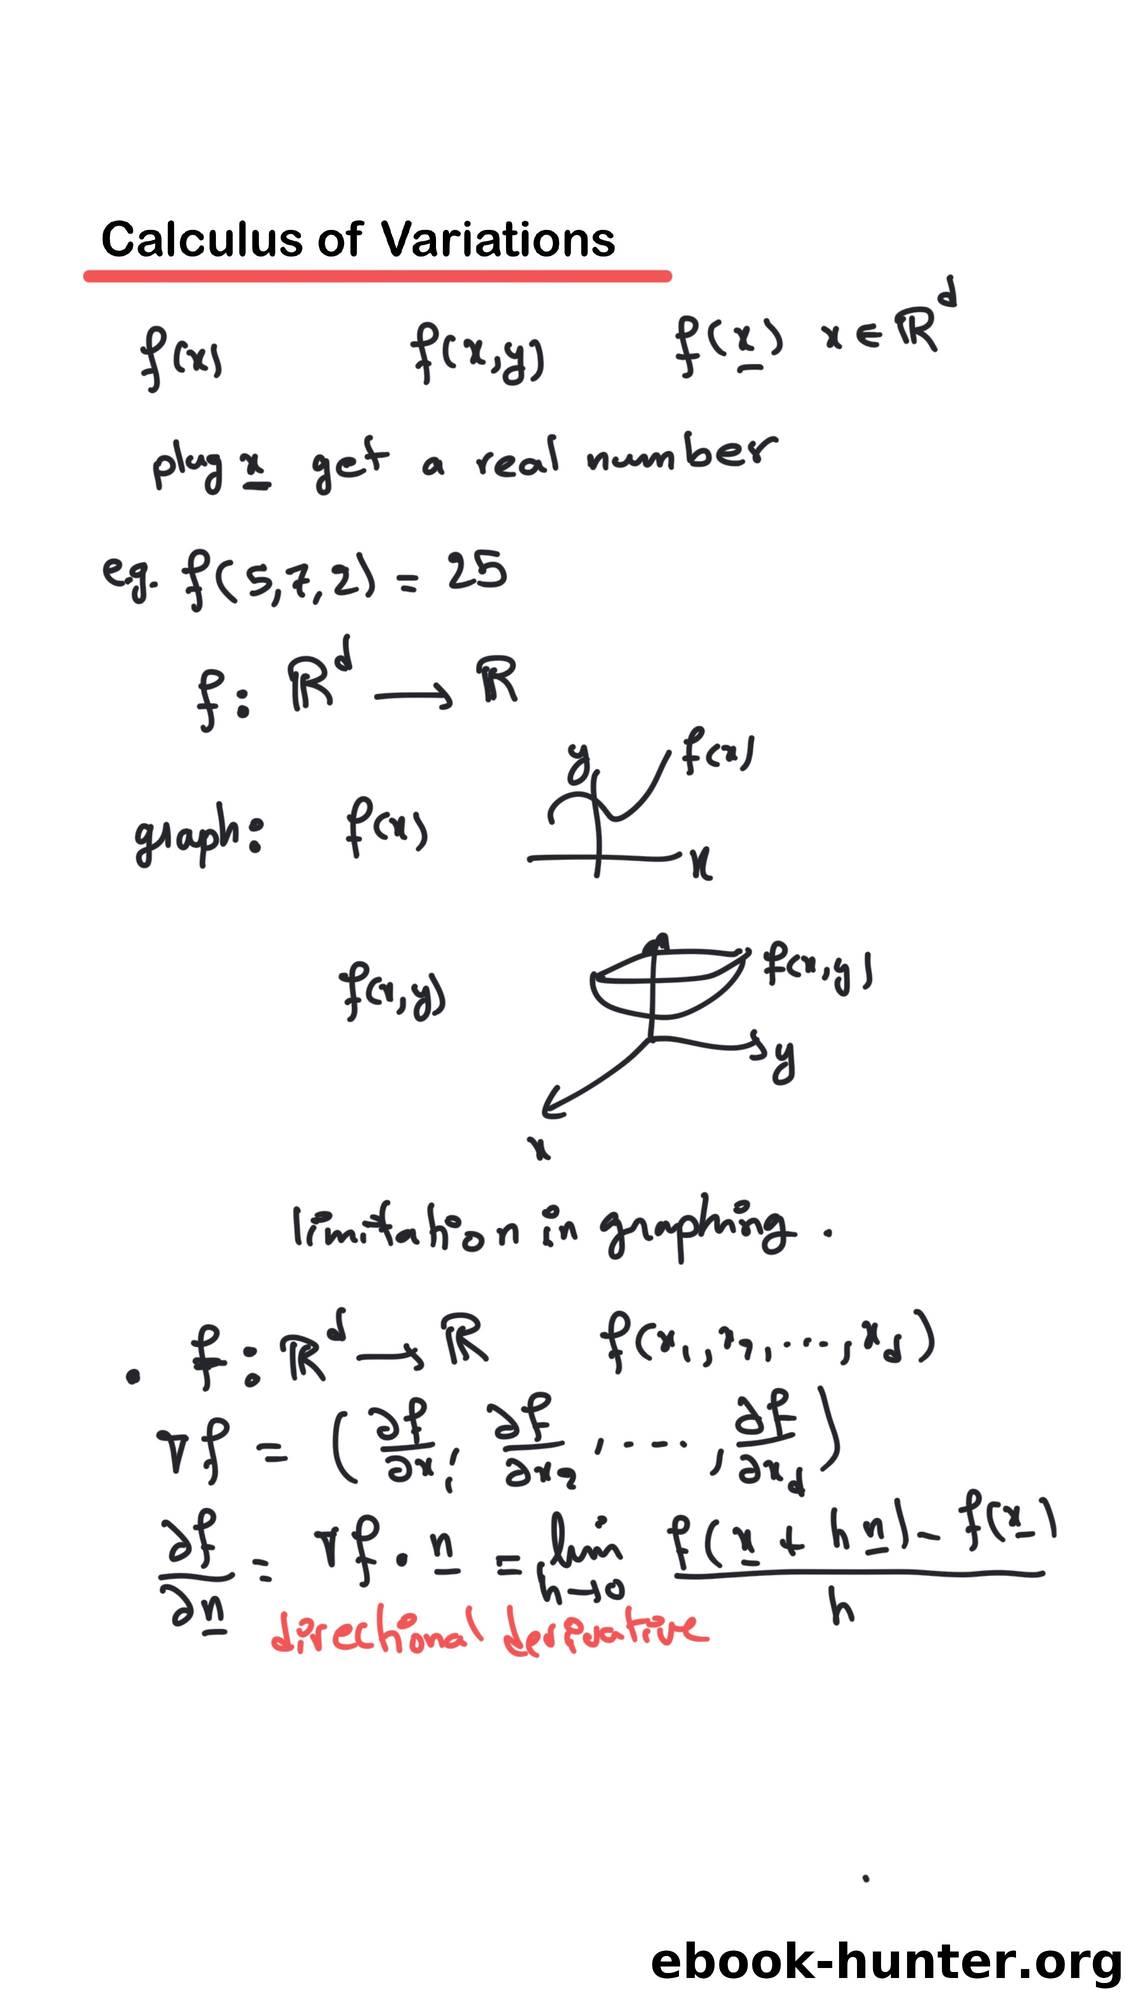 Calculus of Variations
f(x) f(x,y) f(x) x ∈ ℝᵈ
plug x get a real number
e.g. f(5,7,2) = 25
f: ℝᵈ → ℝ
y f(x)
graph: f(x)
x
f(x,y) f(x,y)
y
x
limitation in graphing.
. f: ℝᵈ → ℝ f(x₁, x₂, ..., x_d)
∇f = (∂f/∂x₁, ∂f/∂x₂, ..., ∂f/∂x_d)
∂f/∂n = ∇f · n = lim h→0 f(x + hn) - f(x) / h
directional derivative
ebook-hunter.org